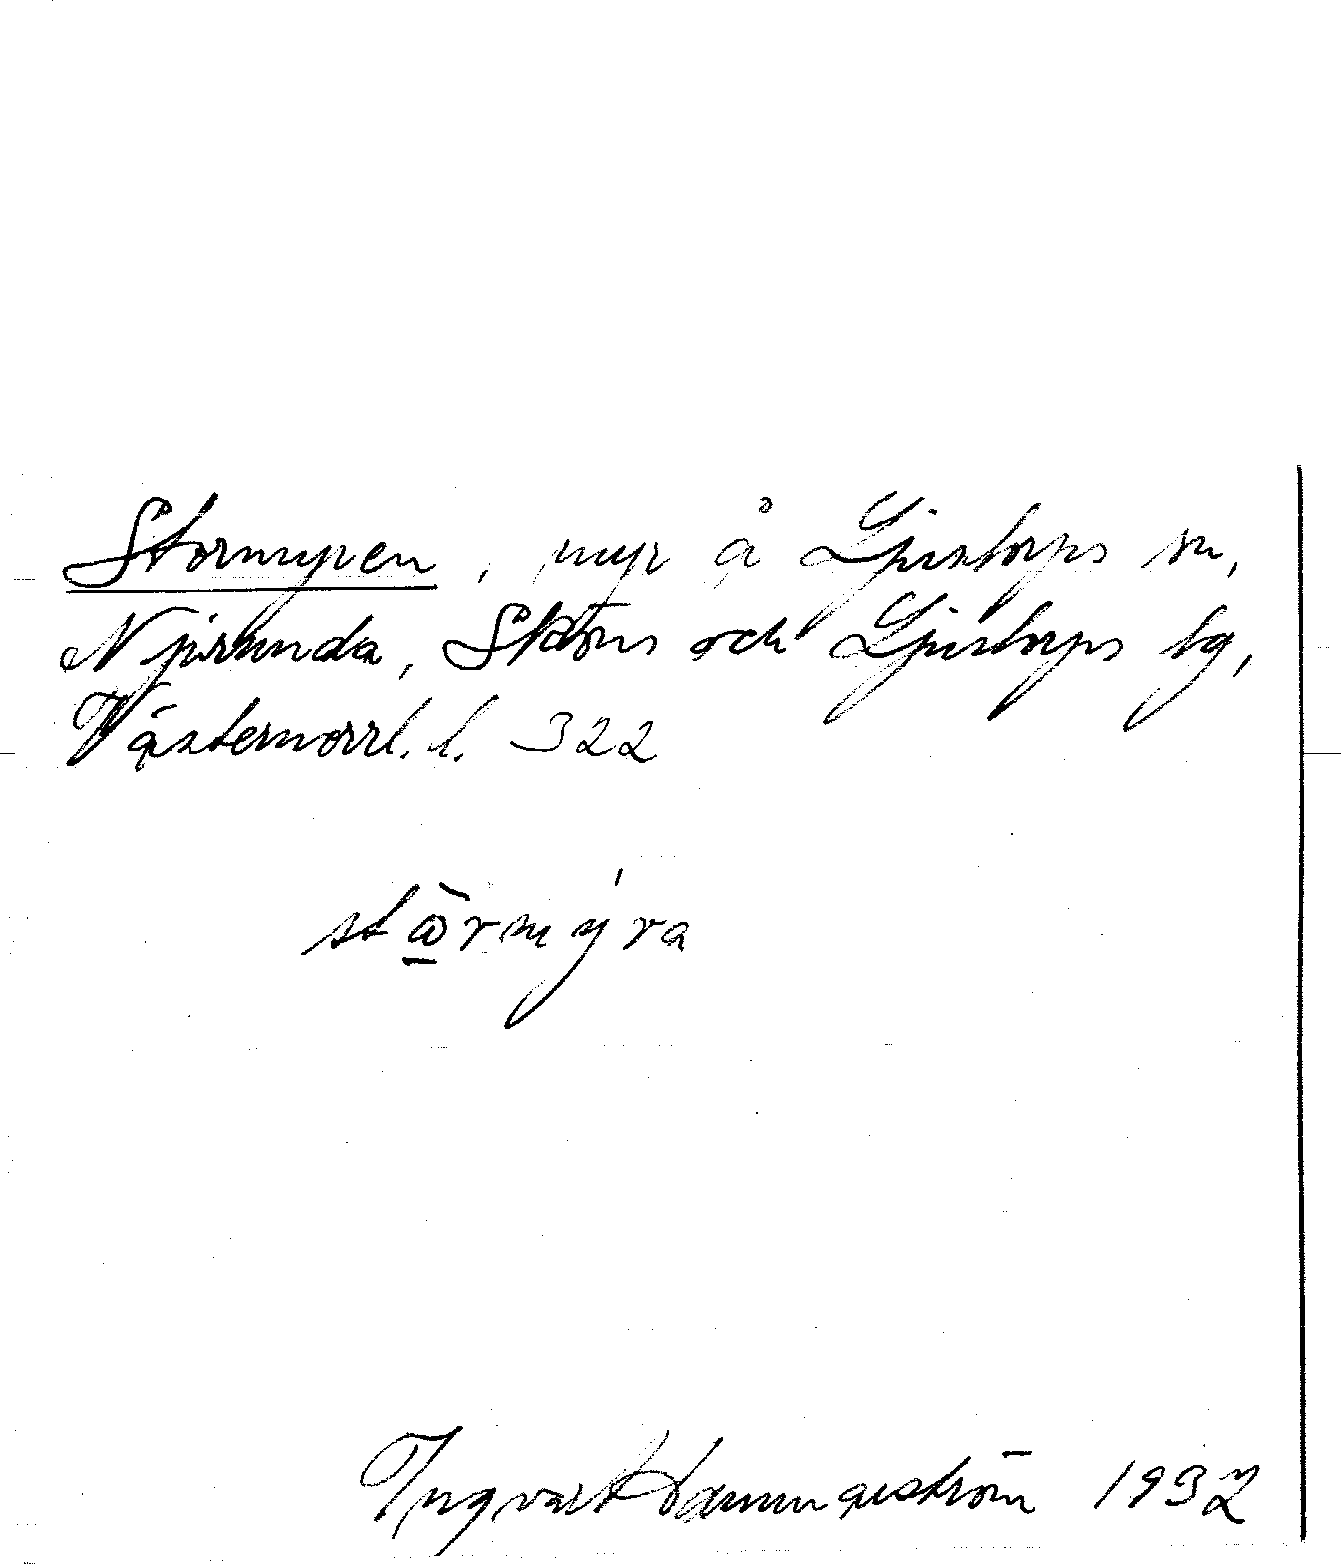 Stormyren, myr å Ljustorps sn,
Njurunda, Sköns och Ljustorps tg,
Västernorrl. l. 322
Ingvar Hammarström 1932